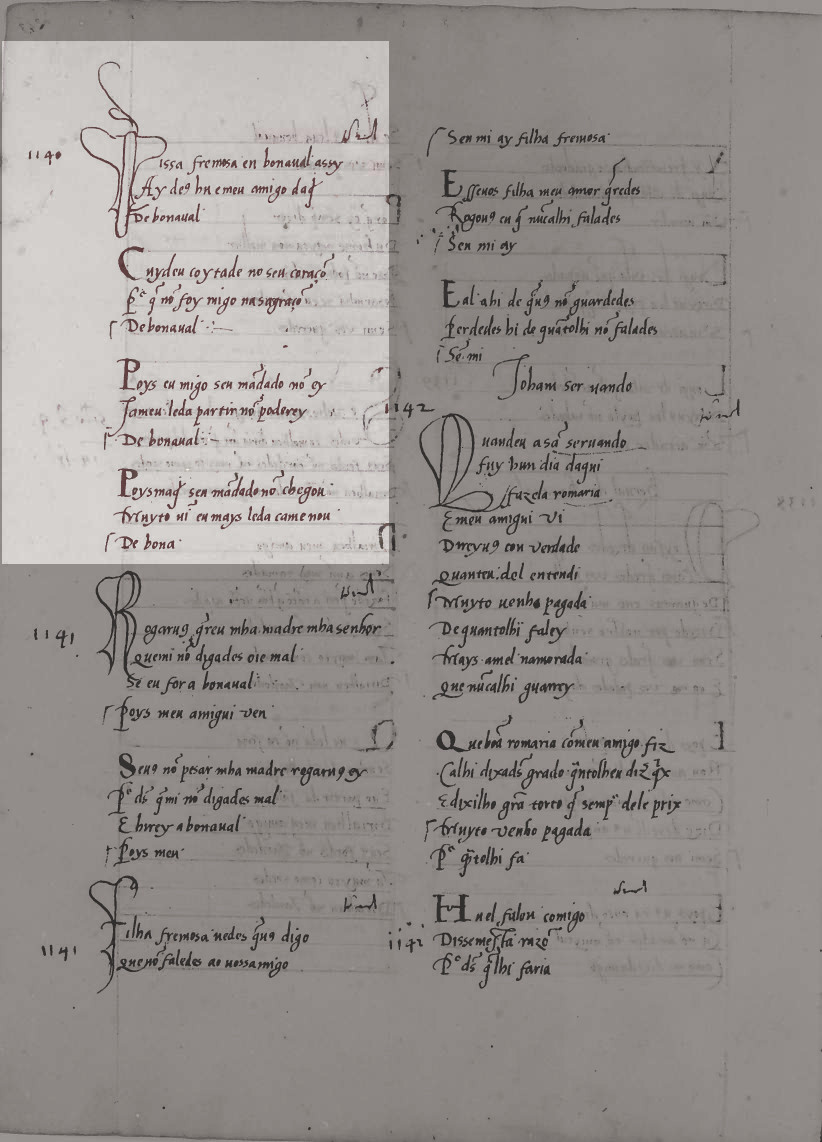 1140
Fissa fremosa en bonaual assy
Ay deꝯ hu e meu amigo daq̃
De bonaual
Cuydeu coytade no seu coraçõ
Pꝰ q̃ nõ foy migo na sagraçõ
De bonaual
Poys eu migo seu mãdado nõ ey
Ja meu leda partir nõ poderey
De bonaual
Poys maq̃ seu mãdado nõ chegou
Muyto ui eu mays leda ca me uou
De bona
1141
Rogarꝯ q̃reu mha madre mha senhor
Que mi nõ digades oie mal
Se eu for a bonaual
Poys meu amigui ven
Seuꝯ nõ pesar mha madre rogarꝯ ey
Pꝰ dš q̃ mi nõ digades mal
E hirey a bonaual
Poys meu
1141
Filha fremosa uedes q̃uꝯ digo
Que nõ faledes ao uossamigo
Sen mi ay filha fremosa
E sseuos filha meu amor q̃redes
Rogouꝯ eu q̃ nũcalhi falades
Sen mi ay
E al a hi de q̃uꝯ nõ guardedes
Perdedes hi de quãtolhi nõ falades
Sẽ mi
Joham seruando
1142
Quandeu a sã seruando
fuy hun dia daqui
ffazela romaria
E meu amigui vi
Direyuꝯ con verdade
Quanteu del entendi
Muyto uenho pagada
De quantolhi faley
Mays amel namorada
Que nũcalhi guarrey
Que boã romaria cõ meu amigo fiz
Calhi dixa dš grado
E dixilho grã torto q̃ semp̃ dele prix
Muyto venho pagada
Pꝰ q̃tolhi fa
1142
Hu el falou comigo
Disseme sta razõ
Pꝰ dš q̃ lhi faria